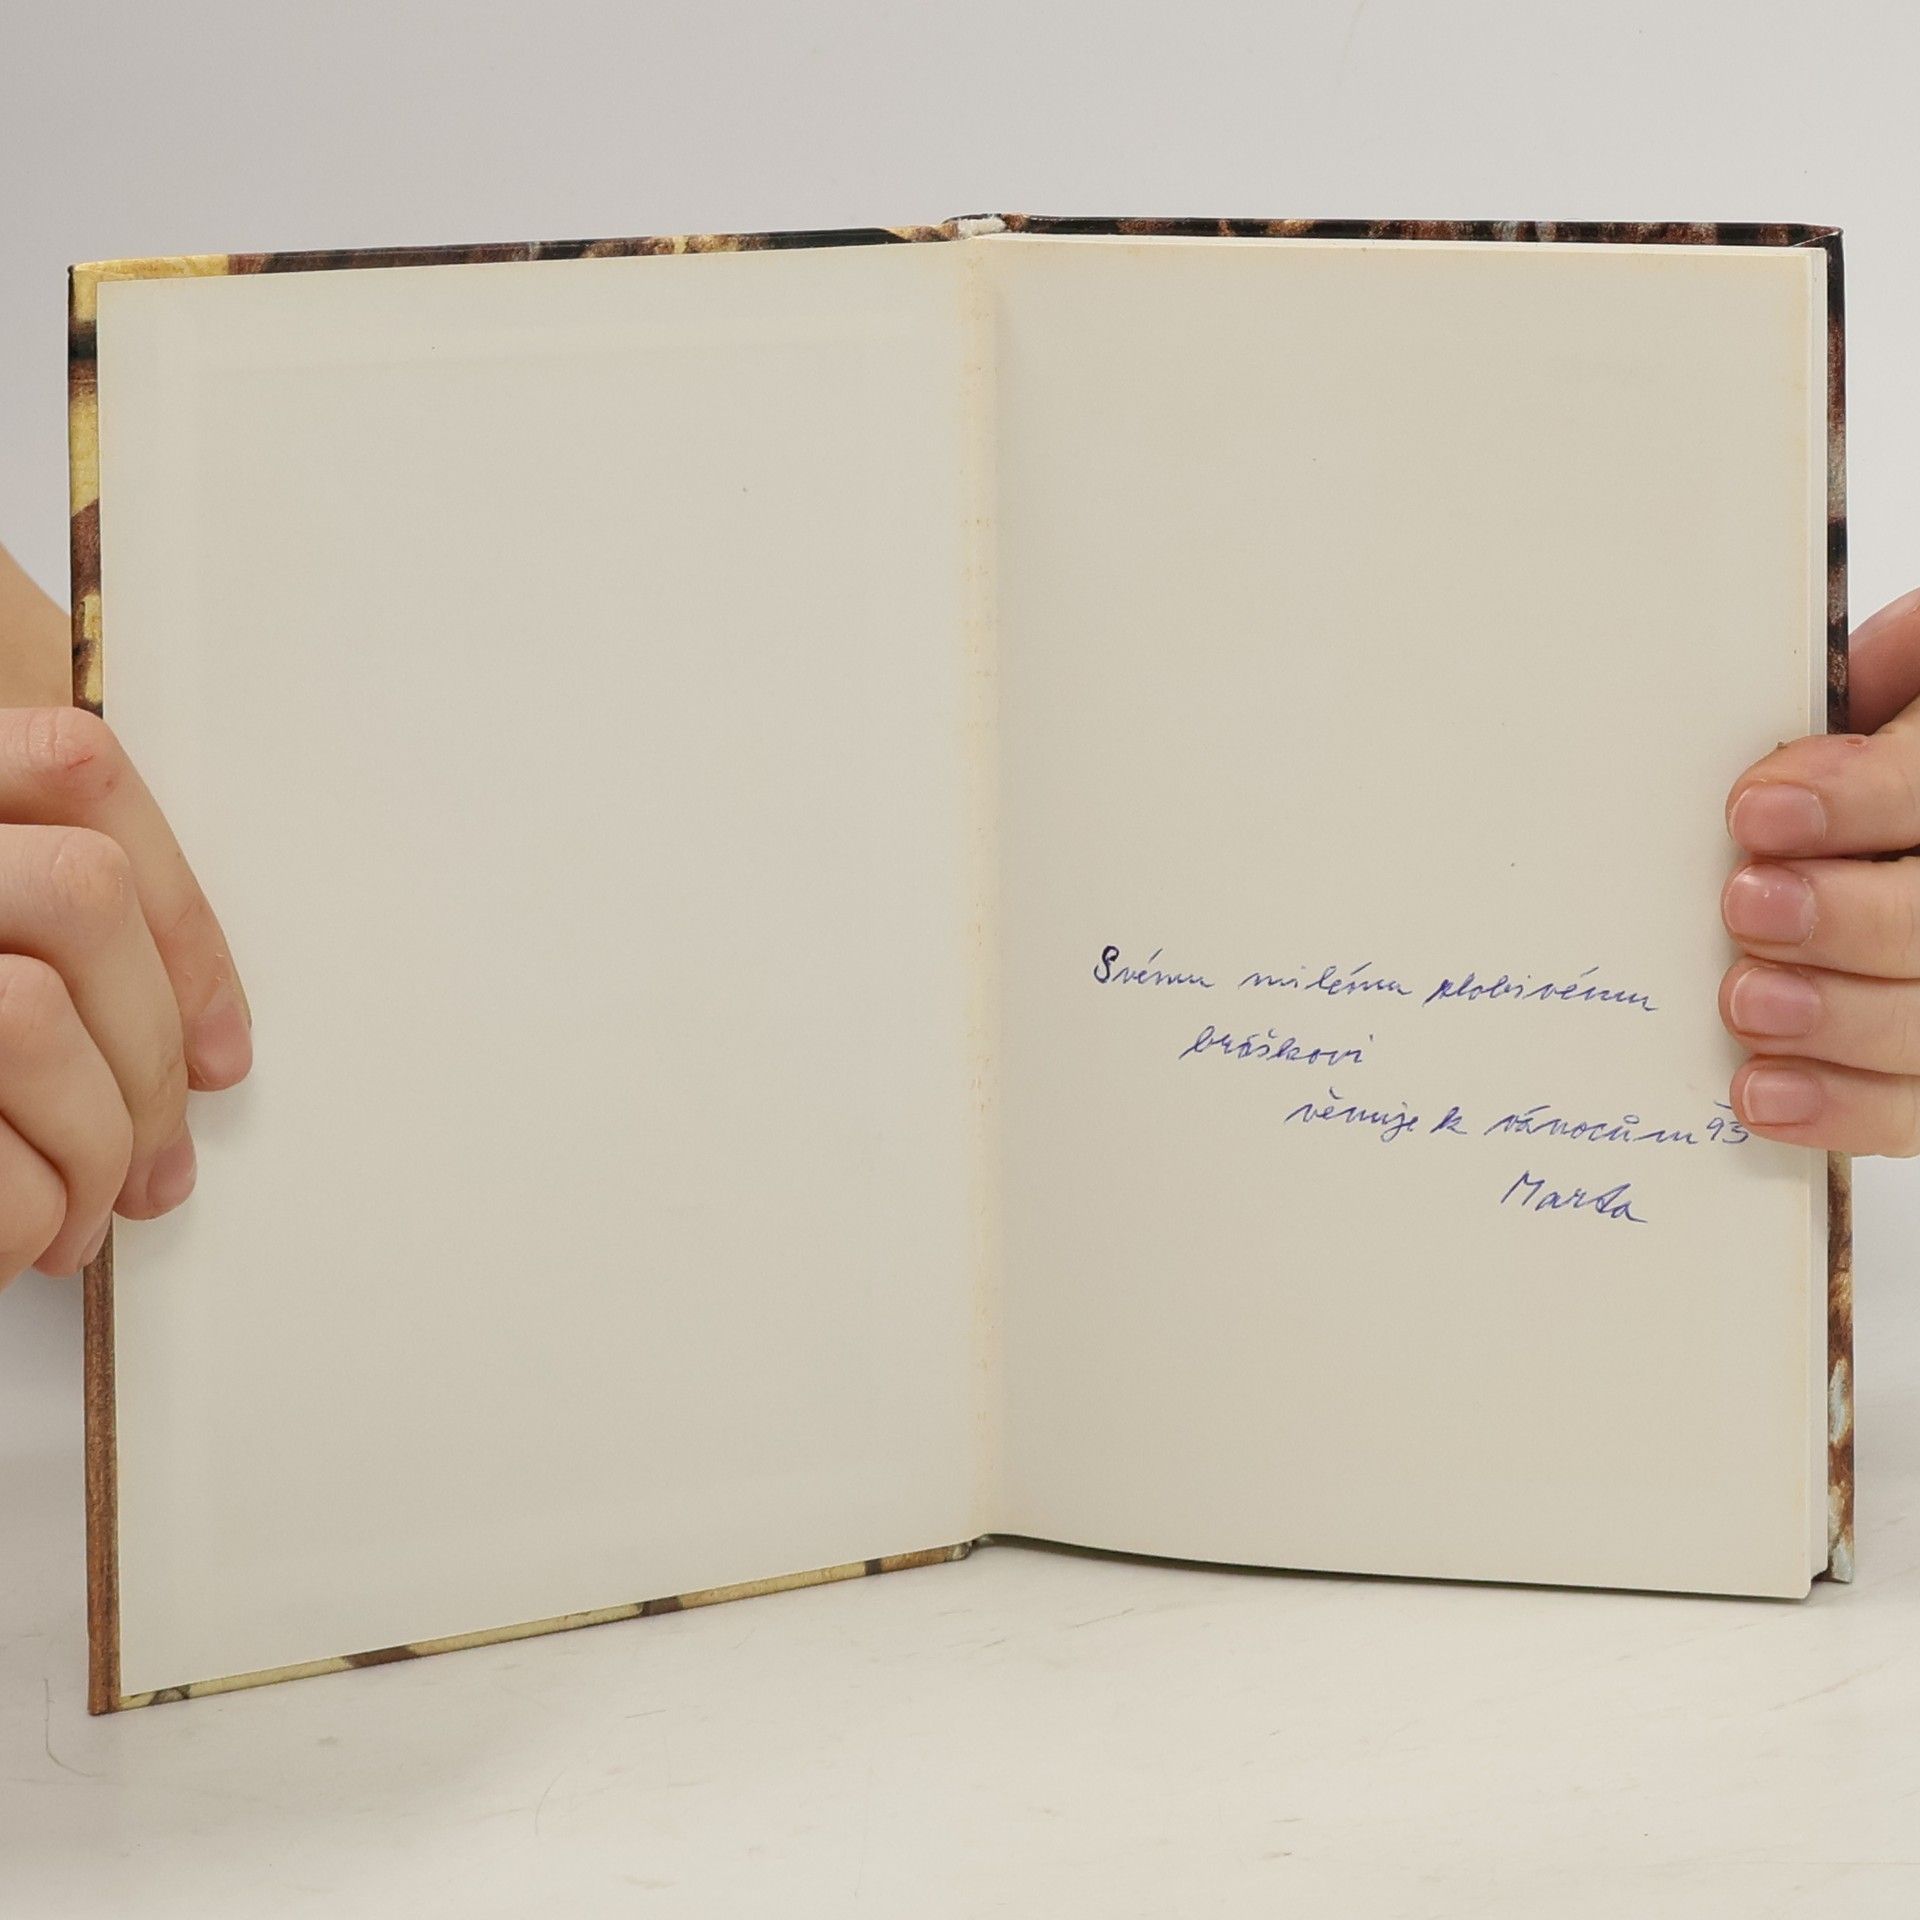 Svému milému zlobivému
bráškovi
věnuje k vánocům 93
Marta